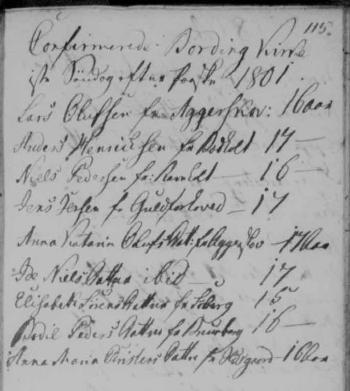 115.
Confirmerede i Bording Kirke
1ste Søndag efter Paaske 1801.
Lars Olufsen fra Aggerskov: 16 aar
Anders Henrichsen fra 17 —
Niels Pedersen fra 16 —
Jens Jensen fr Guldforhoved — 17
Anna Katarin Olufs Datt: fr Aggerskov — 17 aar
Niels Datter ibid — 17
Elisabeth Datter fra 15
Bodil Peders Datter fra 16 —
Anna Maria Christens Datter fr 16 aar